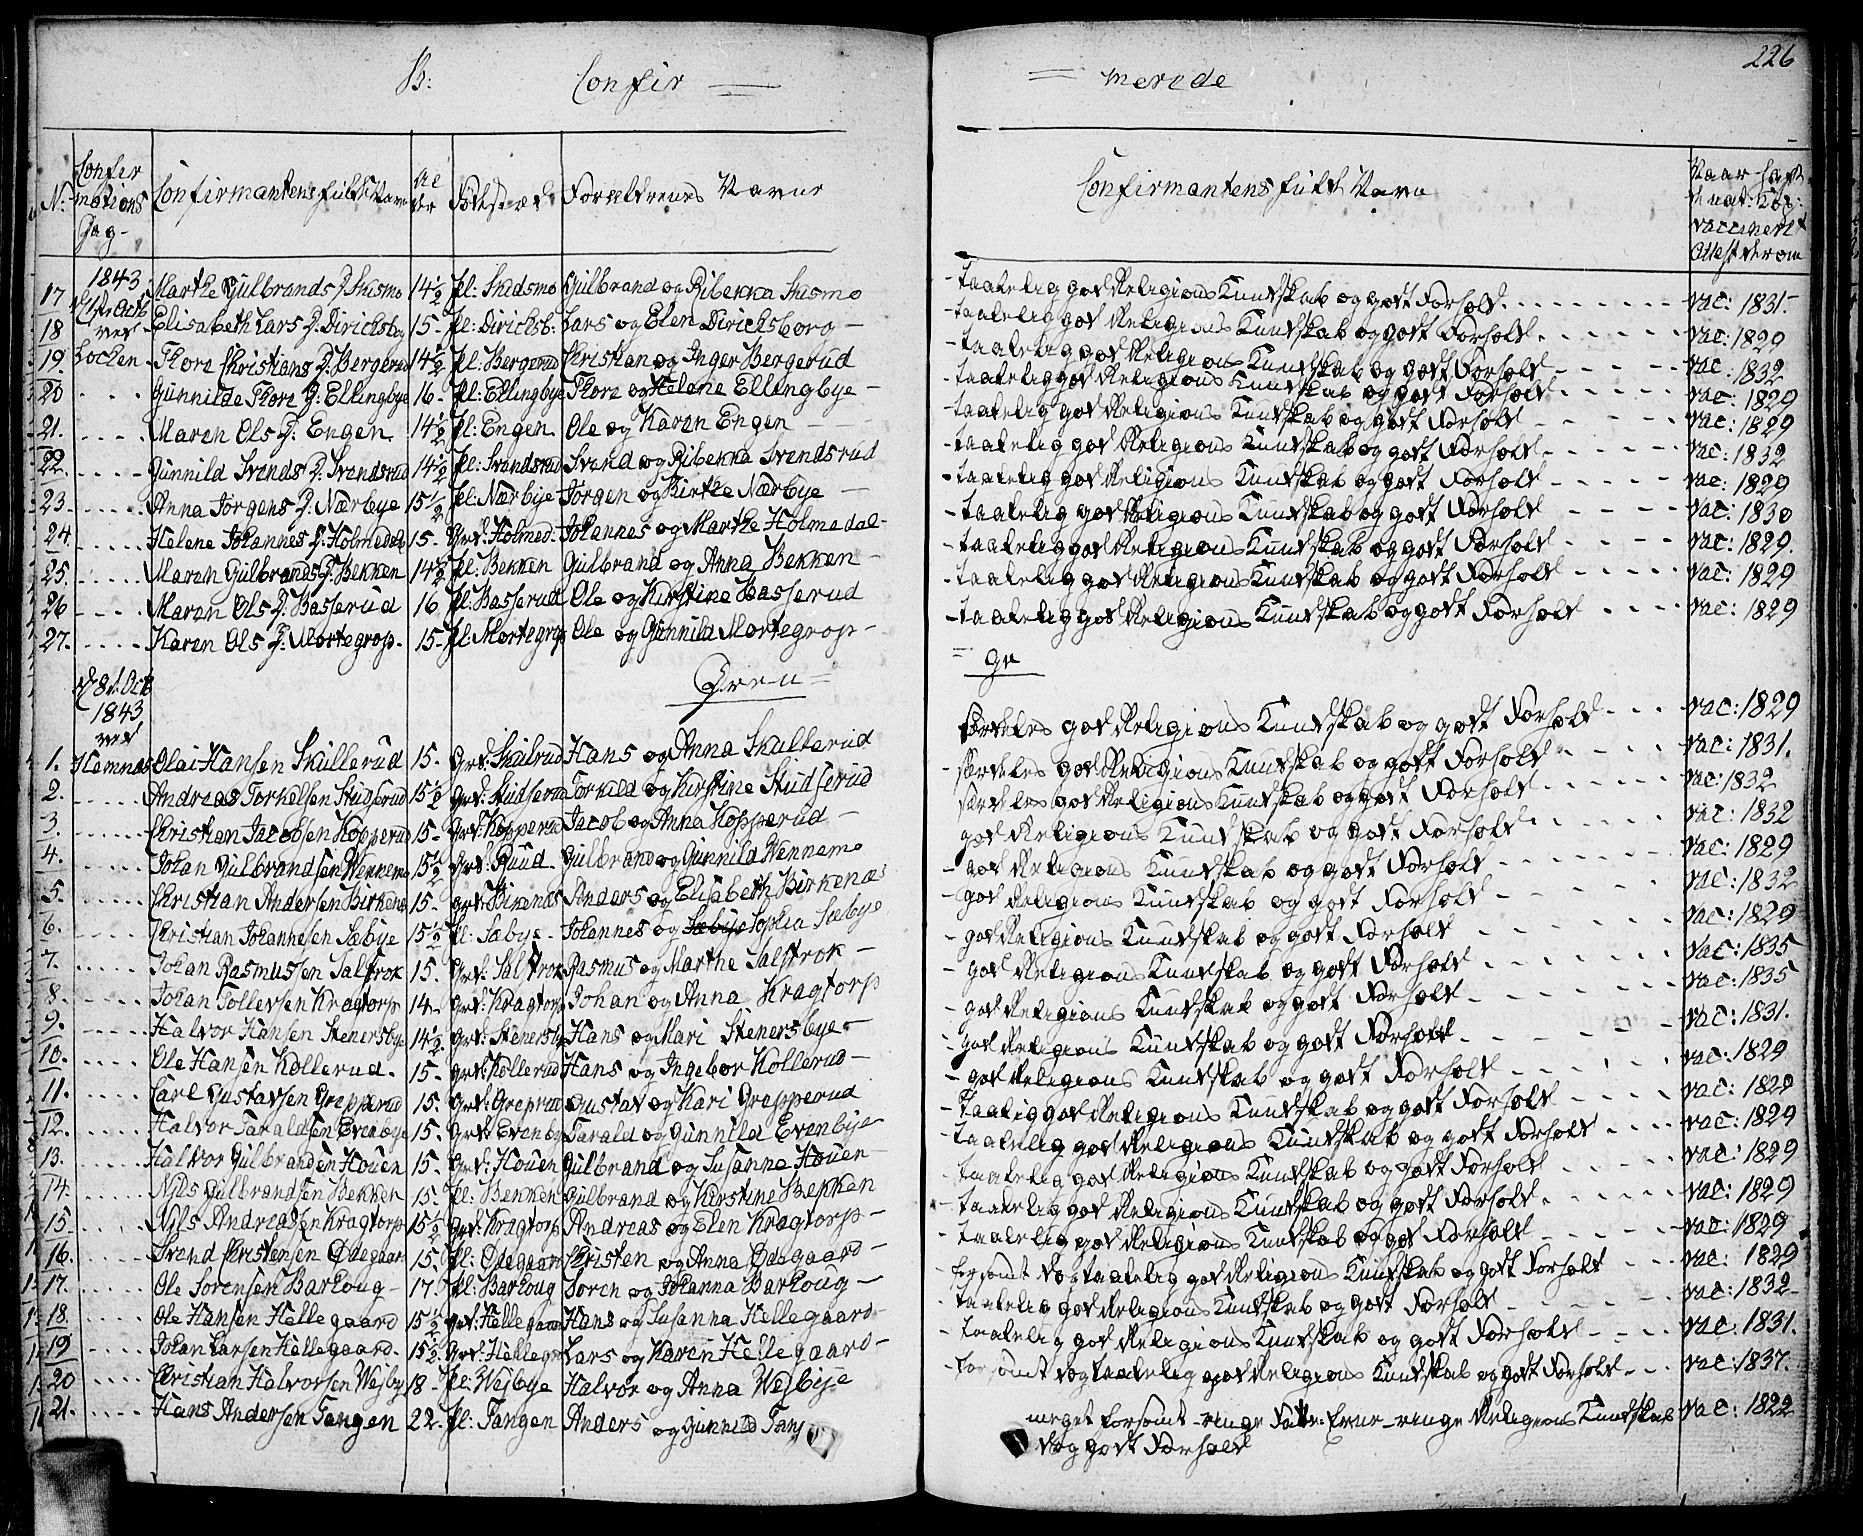 B: Confir = = merede 226
N: Confirmations Dag- Confirmantens fulde Navn Alder Fødested Forældrenes Navne Confirmantens fulde Navn Naar havt naat: Kop: vaccineret Attest derom
17 1843 Marthe Gulbrands D. Skismo 14½ pl: Skidsmo Gulbrand og Ribekka Skismo - taalelig god Religions Kundskab og godt Forhold vac: 1831-
18 1ste Octb ved Elisabeth Lars D. Dirichsbog 15- pl: Dirichsb: Lars og Elen Dirichsborg - - taalelig god Religions Kundskab og godt Forhold vac: 1829
19. Lochen - Thore Christians D. Bergerud 14½ pl: Bergerud Christian og Inger Bergerud - taalelig god Religions Kundskab og godt Forhold vac: 1832
20 Gunnilde Thore D: Ellingbye 16- pl: Ellingbye Thore og Helene Ellingbye - - taalelig god Religions Kundskab og godt Forhold vac: 1829
21. Maren Ols D: Engen 14½ pl: Engen. Ole og Karen Engen - taalelig god Religions Kundskab og godt Forhold vac: 1829
22. Gunnild Svends D. Svendsrud 14½ pl: Svendsrud Svend og Ribekka Svendsrud - taalelig god Religions Kundskab og godt Forhold vac: 1832
23 Anna Jørgens D. Nærbye 15½ pl: Nærbye Jørgen og Birthe Nærbye - - taalelig god Religions Kundskab og godt Forhold vac: 1829
24. Helene Johannes D. Holmedal 15- Grd: Holmed. Johannes og Marthe Holmedal- - taalelig god Religions Kundskab og godt Forhold vac: 1830
25. Maren Gulbrands D. Bekken 14½ pl: Bekken Gulbrand og Anna Bekken - - taalelig god Religions Kundskab og godt Forhold vac: 1829
26 Maren Ols D. Basserud 16 pl: Basserud Ole og Kirstine Basserud - taalelig god Religions Kundskab og godt Forhold vac: 1829
27. Karen Ols D: Mortegrop. 15- pl: Mortegrop Ole og Gunnild Mortegrop - - taalelig god Religions Kundskab og godt Forhold vac: 1829
d: 8d Octb Dren = = ge
1843
ved
1. Hemnæs Olai Hansen Skullerud 15. Grd: Skullrud Hans og Anna Skullerud særdeles god Religions Kundskab og godt Forhold vac: 1829
2. Andreas Torkelsen Studserud 15½ Grd: Studserud Torkild og Kirstine Studserud særdeles god Religions Kundskab og godt Forhold vac: 1831.
3. Christian Jacobsen Kopperud 15- Grd: Kopperud Jacob og Anna Kopperud - særdeles god Religions Kundskab og godt Forhold vac: 1832
4. Johan Gulbrandsen Wennemo 15½ Grd: Ruud. Gulbrand og Gunnild Wennemo god Religions Kundskab og godt Forhold vac: 1832
5. Christian Andersen Birkenæs 15- Grd: Birkenæs Anders og Elisabeth Birkenæs - god Religions Kundskab og godt Forhold vac: 1829
6. Christian Johannesen Sæbye 15½ pl: Sæbye - Johannes og Sæbye Sophia Sæbye - god Religions Kundskab og godt Forhold vac: 1832
7. Johan Rasmussen Salfrok 15. Grd: Salfrok Rasmus og Marthe Salfrok - - god Religions Kundskab og godt Forhold vac: 1829
8. Johan Tollevsen Kragtorp 14- Grd: Kragtorp Johan og Anna Kragtorp - god Religions Kundskab og godt Forhold vac: 1835
9. Halvor Hansen Stenersbye 14½ Grd: Stenersby Hans og Mari Stenersbye - - god Religions Kundskab og godt Forhold vac: 1835
10. Ole Hansen Kollerud. 15- Grd: Kollerud Hans og Ingebor Kollerud - - god Religions Kundskab og godt Forhold vac: 1831.
11. Carl Gustavsen Grepperud 15. Grd: Greprud Gustav og Kari Grepperud - god Religions Kundskab og godt Forhold vac: 1829
12. Halvor Taraldsen Evenbye 15. Grd: Evenby Tarald og Gunnild Evenbye - taalig god Religions Kundskab og godt Forhold vac: 1829
13. Halvor Gulbrandsen Houen 15- Grd: Houen Gulbrand og Susanna Houen - taalelig god Religions Kundskab og godt Forhold vac: 1829
14. Nils Gulbrandsen Bekken 15. pl: Bekken Gulbrand og Kirstine Bekken - taalelig god Religions Kundskab og godt Forhold vac: 1829
15 Nils Andreasen Kragtorp 15½ Grd: Kragtorp Andreas og Elen Kragtorp - - taalelig god Religions Kundskab og godt Forhold vac: 1829
16. Svend Christensen Ødegaard 15. pl: Ødegaard Christen og Anna Ødegaard - - taalelig god Religions Kundskab og god Forhold vac: 1829
17. Ole Sørensen Barhoug - 17. pl: Barhoug Søren og Johanna Barhoug - forsømt dog taalelig god Religions Kundskab og godt Forhold vac: 1829
18. Ole Hansen Hellegaard 15½ Grd: Hellegaard Hans og Susanna Hellegaard - - taalelig god Religions Kundskab og godt Forhold vac: 1832-
19 Johan Larsen Hellegaard. 15½ Grd: Hellegr Lars og Karen Hellegaard - - taalelig god Religions Kundskab og godt Forhold vac: 1831.
20 Christian Halvorsen Wejby 18- pl: Wejbye Halvor og Anna Wejbye forsømt dog taalelig god Religions Kundskab og godt Forhold vac: 1837.
21. Hans Andersen Tangen 22. pl: Tangen Anders og Gunnild Tang meget forsømt - ringe Evne - ringe Religions Kundskab vac: 1822
dog godt Forhold